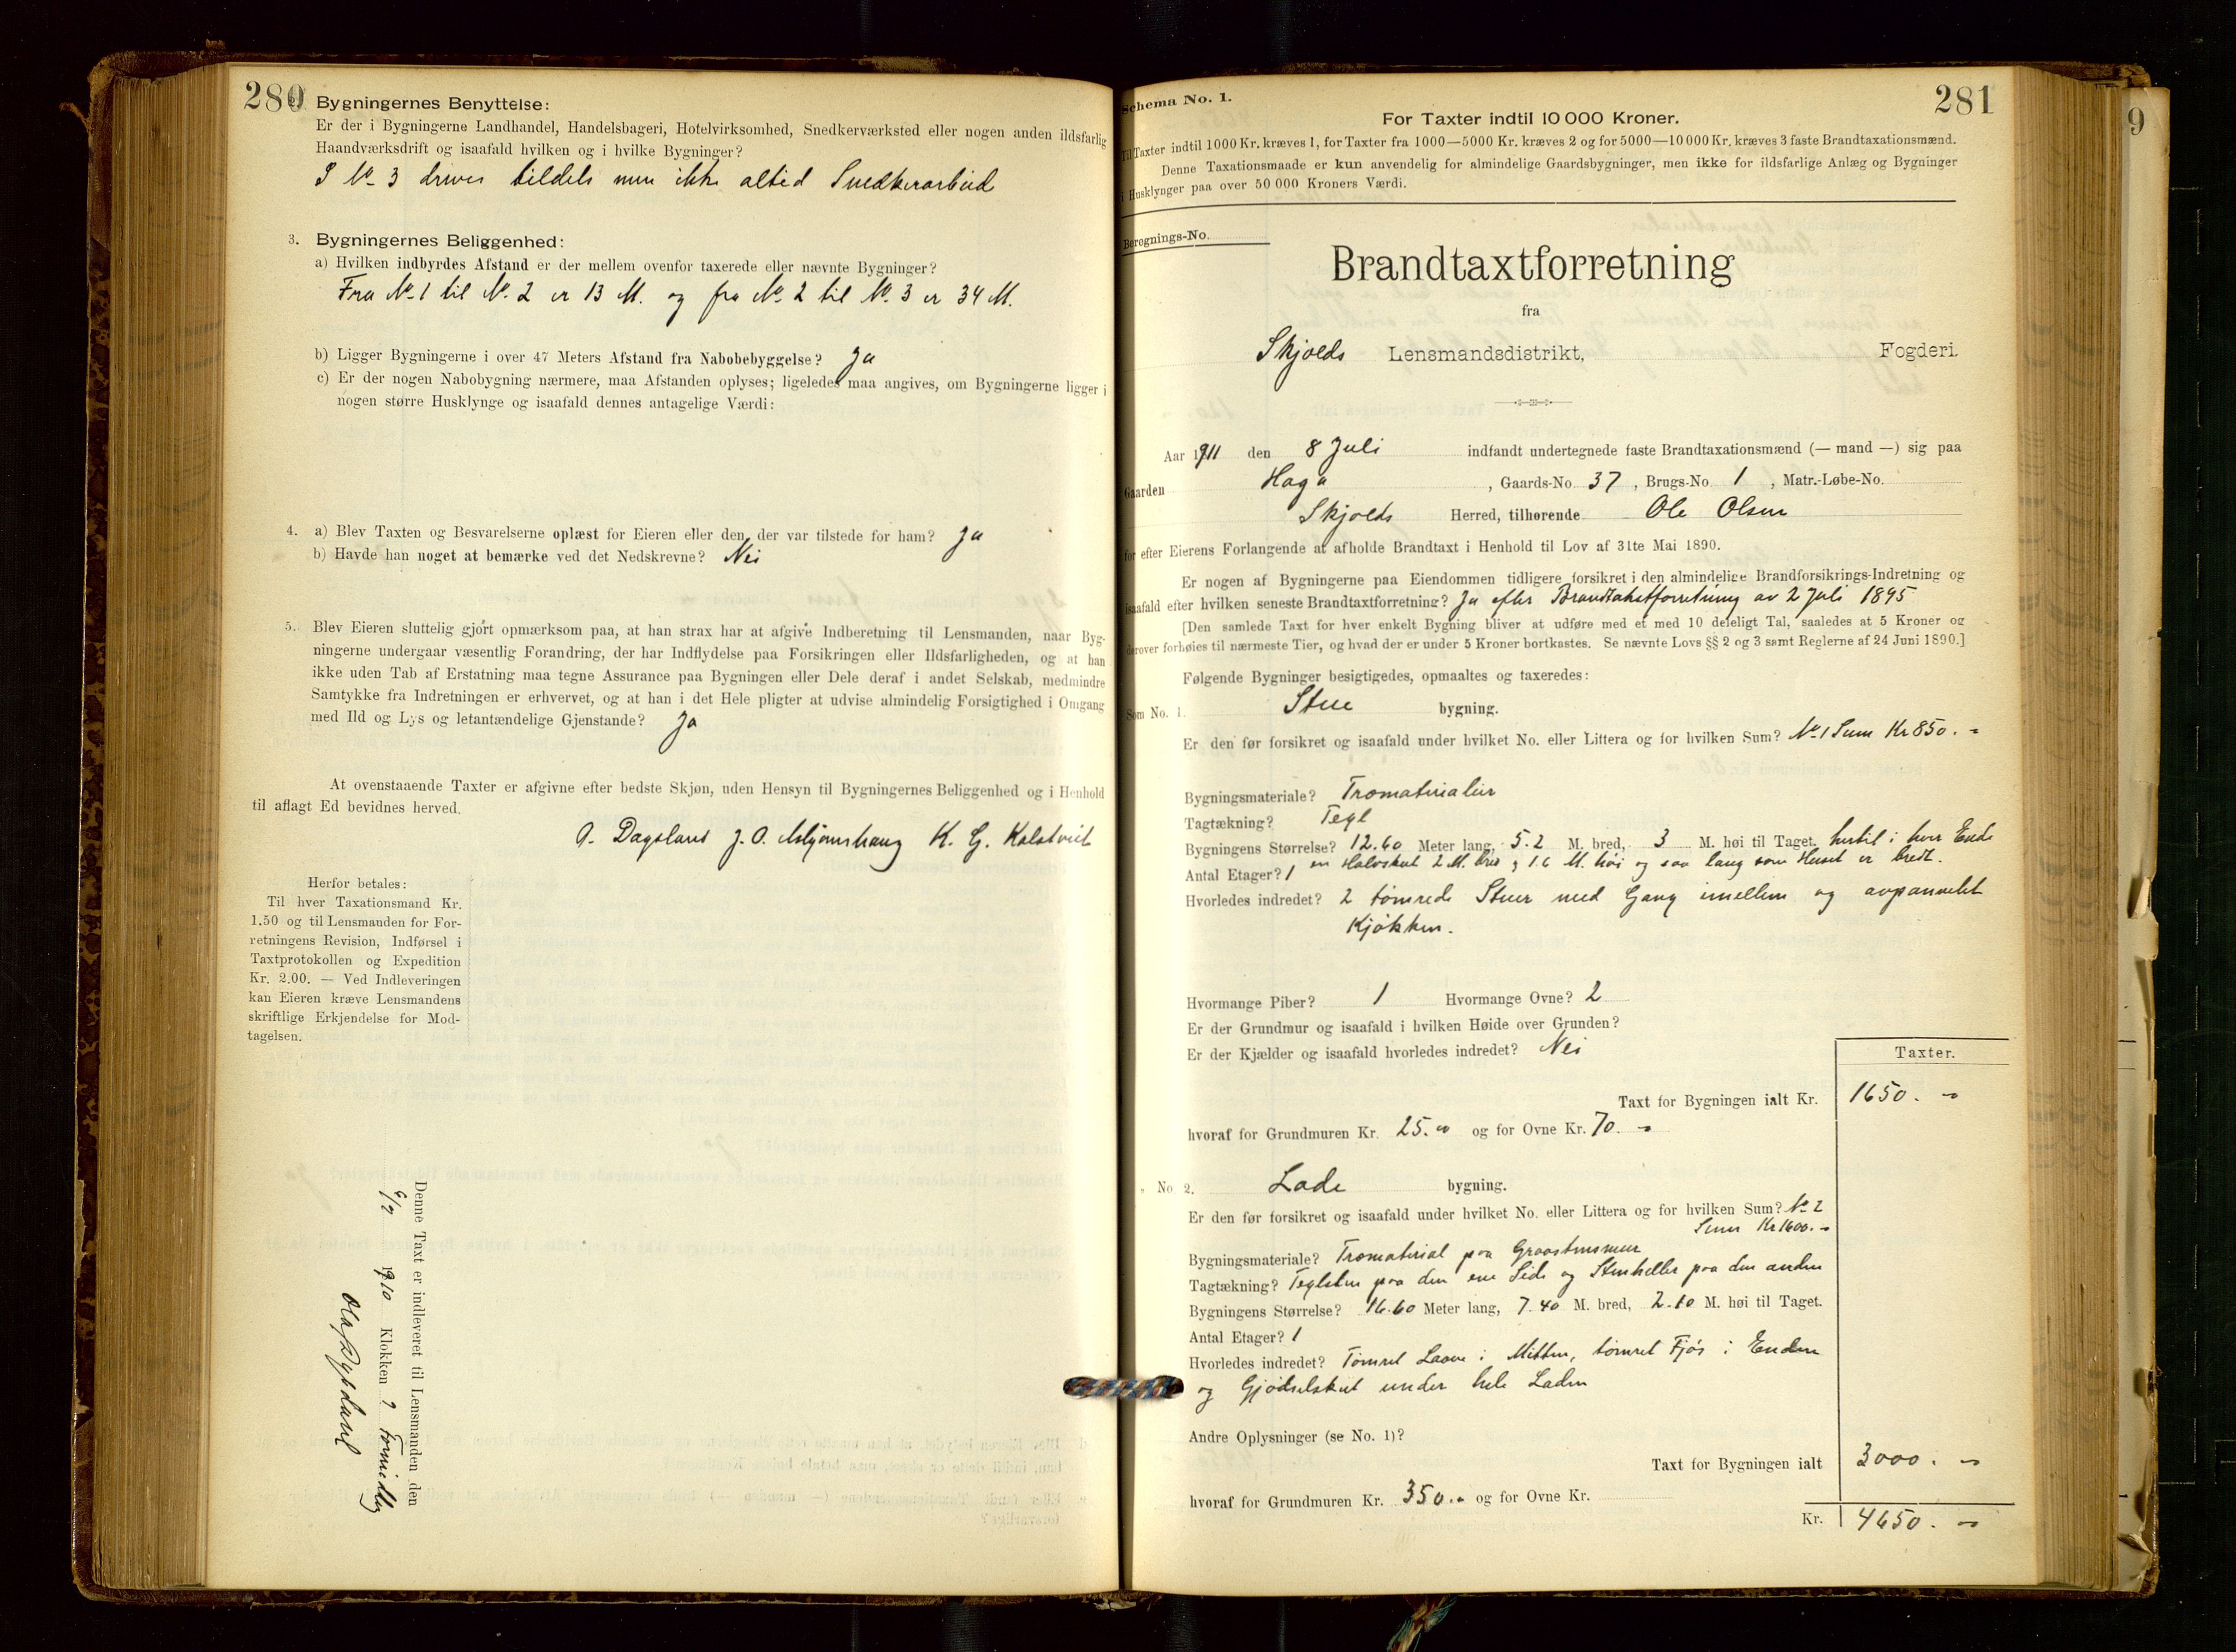 280
Bygningernes Benyttelse:
Er der i Bygningerne Landhandel, Handelsbageri, Hotelvirksomhed, Snedkerværksted eller nogen anden ildsfarlig
Haandværksdrift og isaafald hvilken og i hvilke Bygninger?
I No 3 drives tildels men ikke altid Snedkerarbeide
3. Bygningernes Beliggenhed:
a) Hvilken indbyrdes Afstand er der mellem ovenfor taxerede eller nævnte Bygninger?
Fra No 1 til No. 2 er 13 M. og fra No. 2 til No. 3 er 34 M.
b) Ligger Bygningerne i over 47 Meters Afstand fra Nabobebyggelse? Ja
c) Er der nogen Nabobygning nærmere, maa Afstanden oplyses; ligeledes maa angives, om Bygningerne ligger i
nogen større Husklynge og isaafald dennes antagelige Værdi:
4. a) Blev Taxten og Besvarelserne oplæst for Eieren eller den, der var tilstede for ham? Ja
b) Havde han noget at bemærke ved det Nedskrevne? Nei
5. Blev Eieren sluttelig gjort opmærksom paa, at han strax har at afgive Indberetning til Lensmanden, naar Byg-
ningerne undergaar væsentlig Forandring, der har Indflydelse paa Forsikringen eller Ildsfarligheden, og at han
ikke uden Tab af Erstatning maa tegne Assurance paa Bygningen eller Dele deraf i andet Selskab, medmindre
Samtykke fra Indretningen er erhvervet, og at han i det Hele pligter at udvise almindelig Forsigtighed i Omgang
med Ild og Lys og letantændelige Gjenstande? Ja
At ovenstaaende Taxter er afgivne efter bedste Skjøn, uden Hensyn til Bygningernes Beliggenhed og i Henhold
til aflagt Ed bevidnes herved.
J. O. K. G. Kalstveit
Herfor betales:
Til hver Taxationsmand Kr.
1.50 og til Lensmanden for For-
retningens Revision, Indførsel i
Taxtprotokollen og Expedition
Kr. 2.00. — Ved Indleveringen
kan Eieren kræve Lensmandens
skriftlige Erkjendelse for Mod-
tagelsen.
Denne Taxt er indleveret til Lensmanden den
1910 Klokken Formiddag
281
Schema No. 1.
For Taxter indtil 10 000 Kroner.
Til Taxter indtil 1000 Kr. kræves 1, for Taxter fra 1000—5000 Kr. kræves 2 og for 5000—10000 Kr. kræves 3 faste Brandtaxationsmænd.
Denne Taxationsmaade er kun anvendelig for almindelige Gaardsbygninger, men ikke for ildsfarlige Anlæg og Bygninger
i Husklynger paa over 50 000 Kroners Værdi.
Beregnings-No.
Brandtaxtforretning
fra
Skjolds Lensmandsdistrikt, Fogderi.
Aar 1911 den 8 Juli indfandt undertegnede faste Brandtaxationsmænd (— mand —) sig paa
Gaarden Haga, Gaards-No 37, Brugs-No 1, Matr.-Løbe-No.
Skjolds Herred, tilhørende Ole Olsen
for efter Eierens Forlangende at afholde Brandtaxt i Henhold til Lov af 31te Mai 1890.
Er nogen af Bygningerne paa Eiendommen tidligere forsikret i den almindelige Brandforsikrings-Indretning og
isaafald efter hvilken seneste Brandtaxtforretning? Ja efter Brandtakstforretning av 2 Juli 1895
[Den samlede Taxt for hver enkelt Bygning bliver at udføre med et med 10 deleligt Tal, saaledes at 5 Kroner og
derover forhøies til nærmeste Tier, og hvad der er under 5 Kroner bortkastes. Se nævnte Lovs §§ 2 og 3 samt Reglerne af 24 Juni 1890.]
Følgende Bygninger besigtigedes, opmaaltes og taxeredes:
Som No. 1. Stue bygning.
Er den før forsikret og isaafald under hvilket No. eller Littera og for hvilken Sum? No 1 Sum Kr 850. -
Bygningsmateriale? Træmaterialier
Tagtækning? Tegl
Bygningens Størrelse? 12.60 Meter lang, 5.2 M. bred, 3 M. høi til Taget. hertil i hver Ende
Antal Etager? 1 en Halvskut 2 M. bred og 1.6 M. høi og saa lang som Huset er bredt.
Hvorledes indredet? 2 tømrede Stuer med Gang imellem og avpannelet
Kjøkken.
Hvormange Piber? 1 Hvormange Ovne? 2
Er der Grundmur og isaafald i hvilken Høide over Grunden?
Er der Kjælder og isaafald hvorledes indredet? Nei
Taxter.
Taxt for Bygningen ialt Kr. 1650. -
hvoraf for Grundmuren Kr. 25. - og for Ovne Kr. 70. -
No 2. Lade bygning.
Er den før forsikret og isaafald under hvilket No. eller Littera og for hvilken Sum? No 2
Sum Kr 1600. -
Bygningsmateriale? Træmaterial paa Graastensmur
Tagtækning? Teglsten paa den ene Side og Stenheller paa den anden
Bygningens Størrelse? 16.60 Meter lang, 7.40 M. bred, 2.10 M. høi til Taget.
Antal Etager? 1
Hvorledes indredet? Tømret Laave i Midten, tømret Fjøs i Enden
og Gjødselskut under hele Laden
Andre Oplysninger (se No. 1)?
Taxt for Bygningen ialt 3000. -
hvoraf for Grundmuren Kr. 350. - og for Ovne Kr.
Kr. 4650. -
9